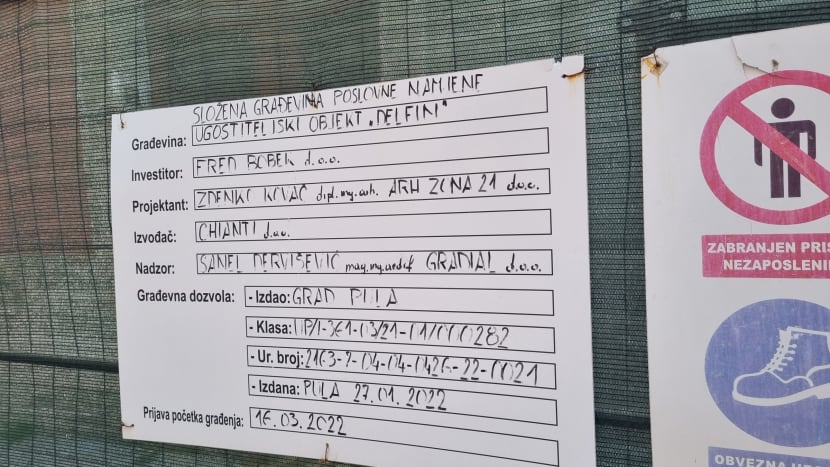 SLOŽENA GRAĐEVINA POSLOVNE NAMJENE
Građevina: UGOSTITELJSKI OBJEKT „DELFIN"
Investitor: FRED BOBEK d.o.o.
Projektant: ZDENKO KOVAČ dipl.ing.arh. ARH ZONA 21 d.o.o.
Izvođač: CHIANTI d.o.o.
Nadzor: SANEL DERVIŠEVIĆ mag.ing.aedif. GRADIAL d.o.o.
Građevna dozvola: - Izdao: GRAD PULA
- Klasa: UP/I-361-03/21-01/000282
- Ur. broj: 2163-7-04-04-0426-22-0021
- Izdana: PULA 27.01.2022
Prijava početka građenja: 16.03.2022
ZABRANJEN PRIS
NEZAPOSLENI
OBVEZNA